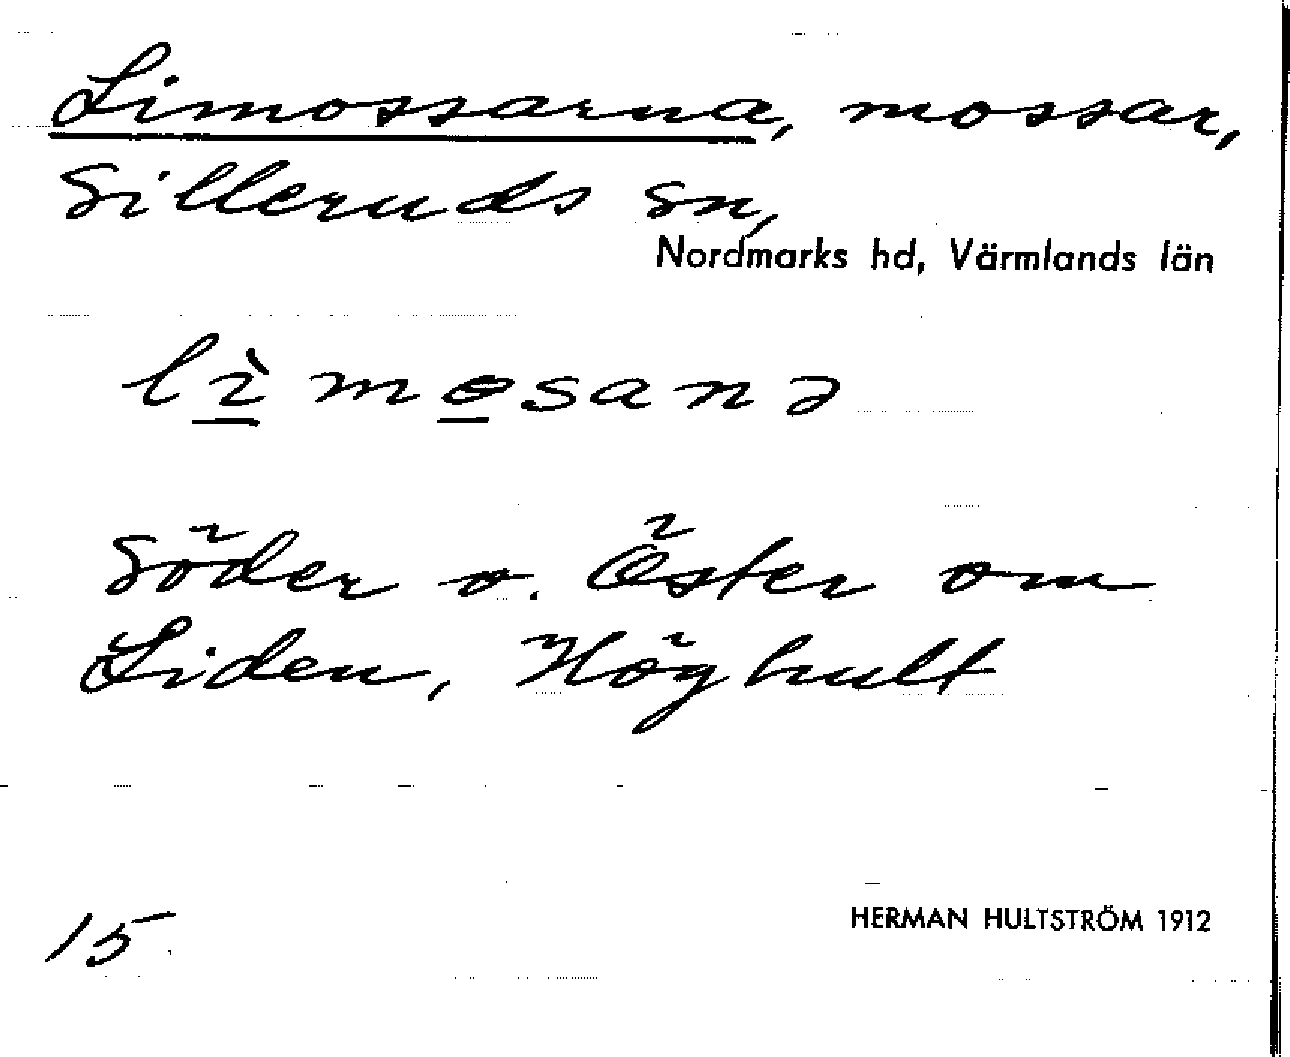 Limossarna, mossar,
Silleruds sn,
Nordmarks hd, Värmlands län
lì mɵsanə
Söder o. Öster om
Liden, Höghult
15
HERMAN HULTSTRÖM 1912